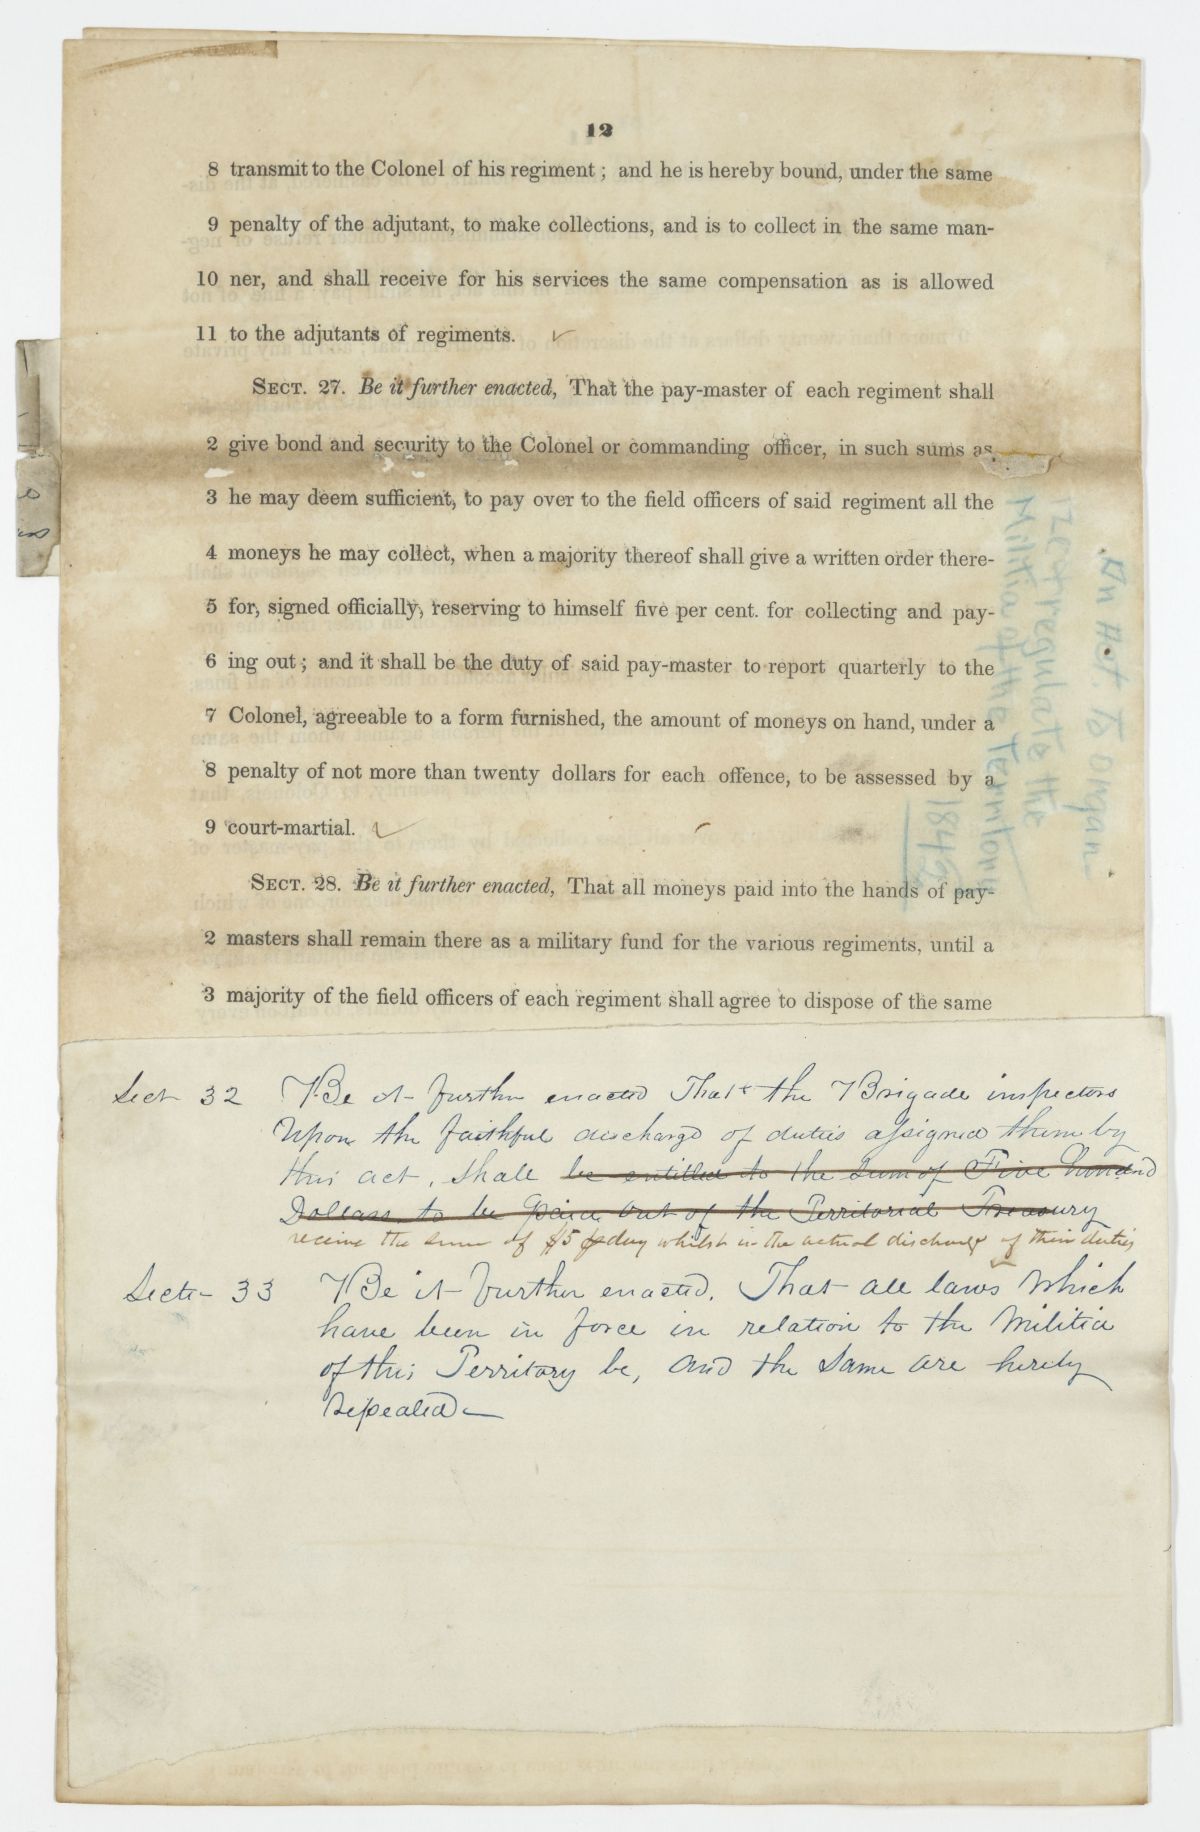 12
8 transmit to the Colonel of his regiment; and he is hereby bound, under the same
9 penalty of the adjutant, to make collections, and is to collect in the same man-
10 ner, and shall receive for his services the same compensation as is allowed
11 to the adjutants of regiments.
SECT. 27. Be it further enacted, That the pay-master of each regiment shall
2 give bond and security to the Colonel or commanding officer, in such sums as
3 he may deem sufficient, to pay over to the field officers of said regiment all the
4 moneys he may collect, when a majority thereof shall give a written order there-
5 for, signed officially, reserving to himself five per cent. for collecting and pay-
6 ing out; and it shall be the duty of said pay-master to report quarterly to the
7 Colonel, agreeable to a form furnished, the amount of moneys on hand, under a
8 penalty of not more than twenty dollars for each offence, to be assessed by a
9 court-martial.
SECT. 28. Be it further enacted, That all moneys paid into the hands of pay-
2 masters shall remain there as a military fund for the various regiments, until a
3 majority of the field officers of each regiment shall agree to dispose of the same
An Act. to organ-
ize & regulate the
Militia of the Territory
Sect 32 Be it further enacted That the Brigade inspectors
Upon the faithful discharge of duties assigned them by
this act, shall be entitled to the sum of Five hundred
Dollars to be paid out of the Territorial Treasury
receive the sum of $5 pr day whilst in the actual discharge of their duties
Secti- 33 Be it further enacted. That all laws which
have been in force in relation to the Militia
of this Territory be, and the same are hereby
repealed